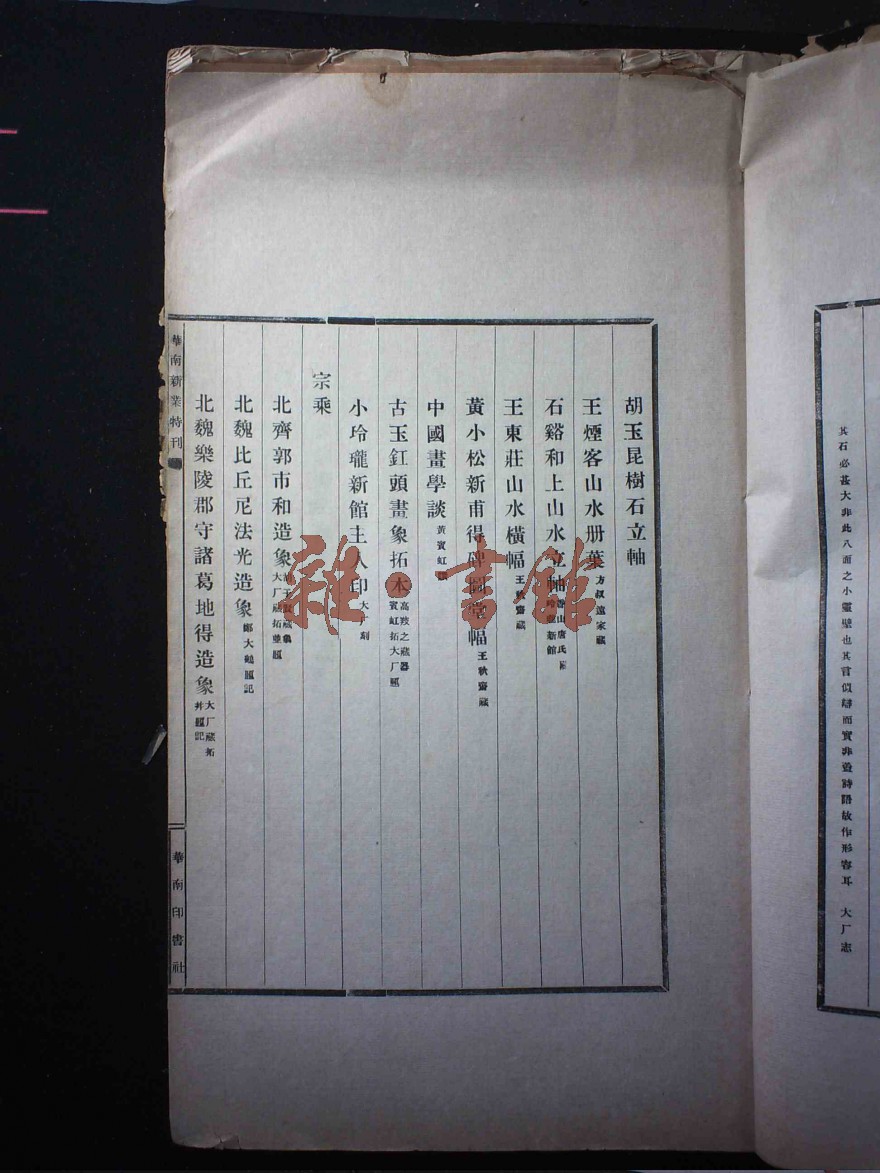 其石必甚大非此八面之小靈壁也其言似辯而實非蓋詩語故作形容耳 大厂志
胡玉昆樹石立軸
王煙客山水册葉 方叔遠家藏
石谿和上山水立軸 山唐氏 玲瓏新館
王東莊山水橫幅 王秋齋藏
黃小松新甫得碑圖堂幅 王秋齋藏
中國畫學談 黃賓虹
古玉釭頭畫象拓本 高羖之藏器 賓虹拓大厂題
小玲瓏新館主人印 大厂刻
宗乘
北齊郭市和造象 大厂藏拓並題
北魏比丘尼法光造象 鄭大鶴題記
北魏樂陵郡守諸葛地得造象 大厂藏拓 并題記
華南新業特刊
華南印書社
雜·書館